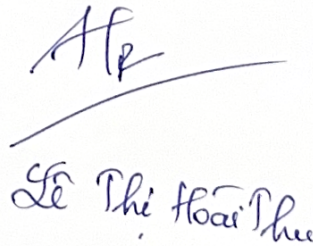 Lê Thị Hoài Thu